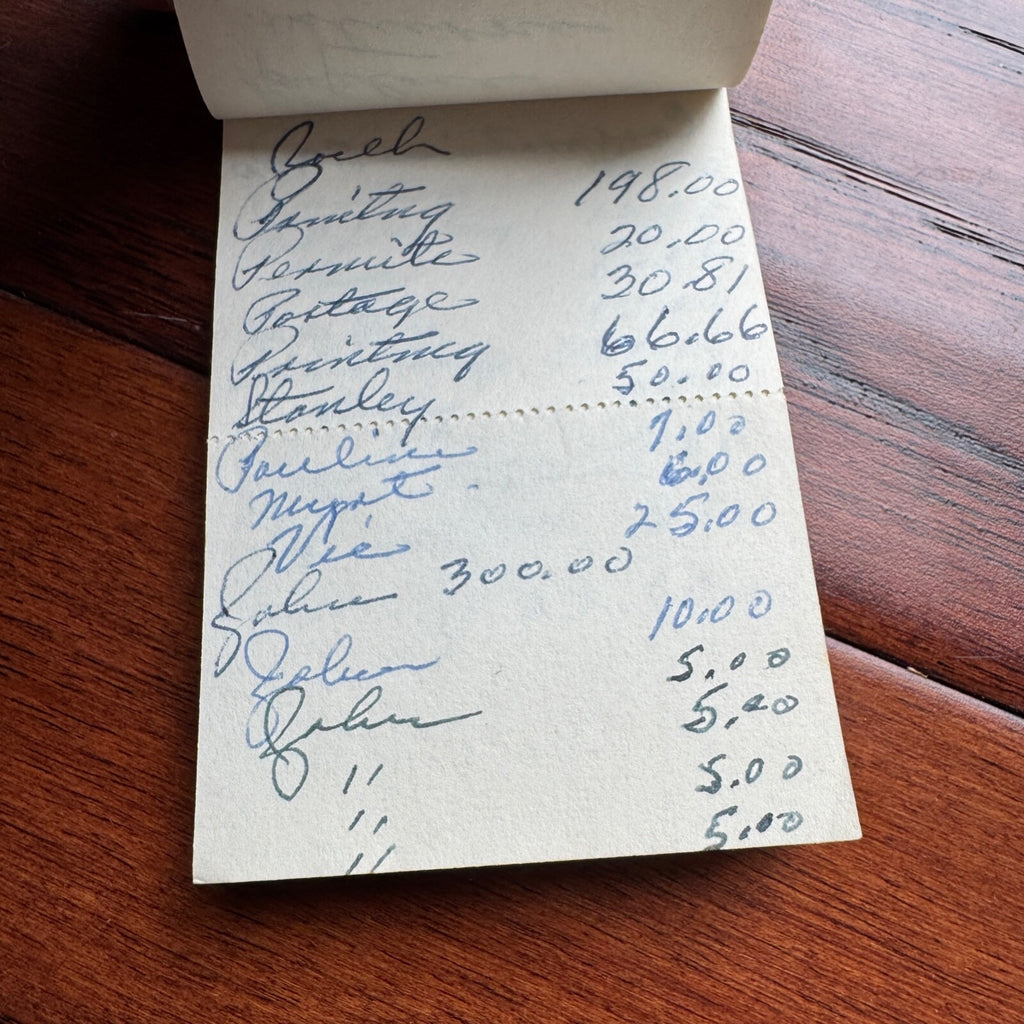 Printing 198.00
Permite 20.00
Postage 30.81
Printing 66.66
Stanley 50.00
Pauline 7.00
Myrt 6.00
Vic 25.00
John 300.00
John 10.00
John 5.00
" 5.00
" 5.00
" 5.00